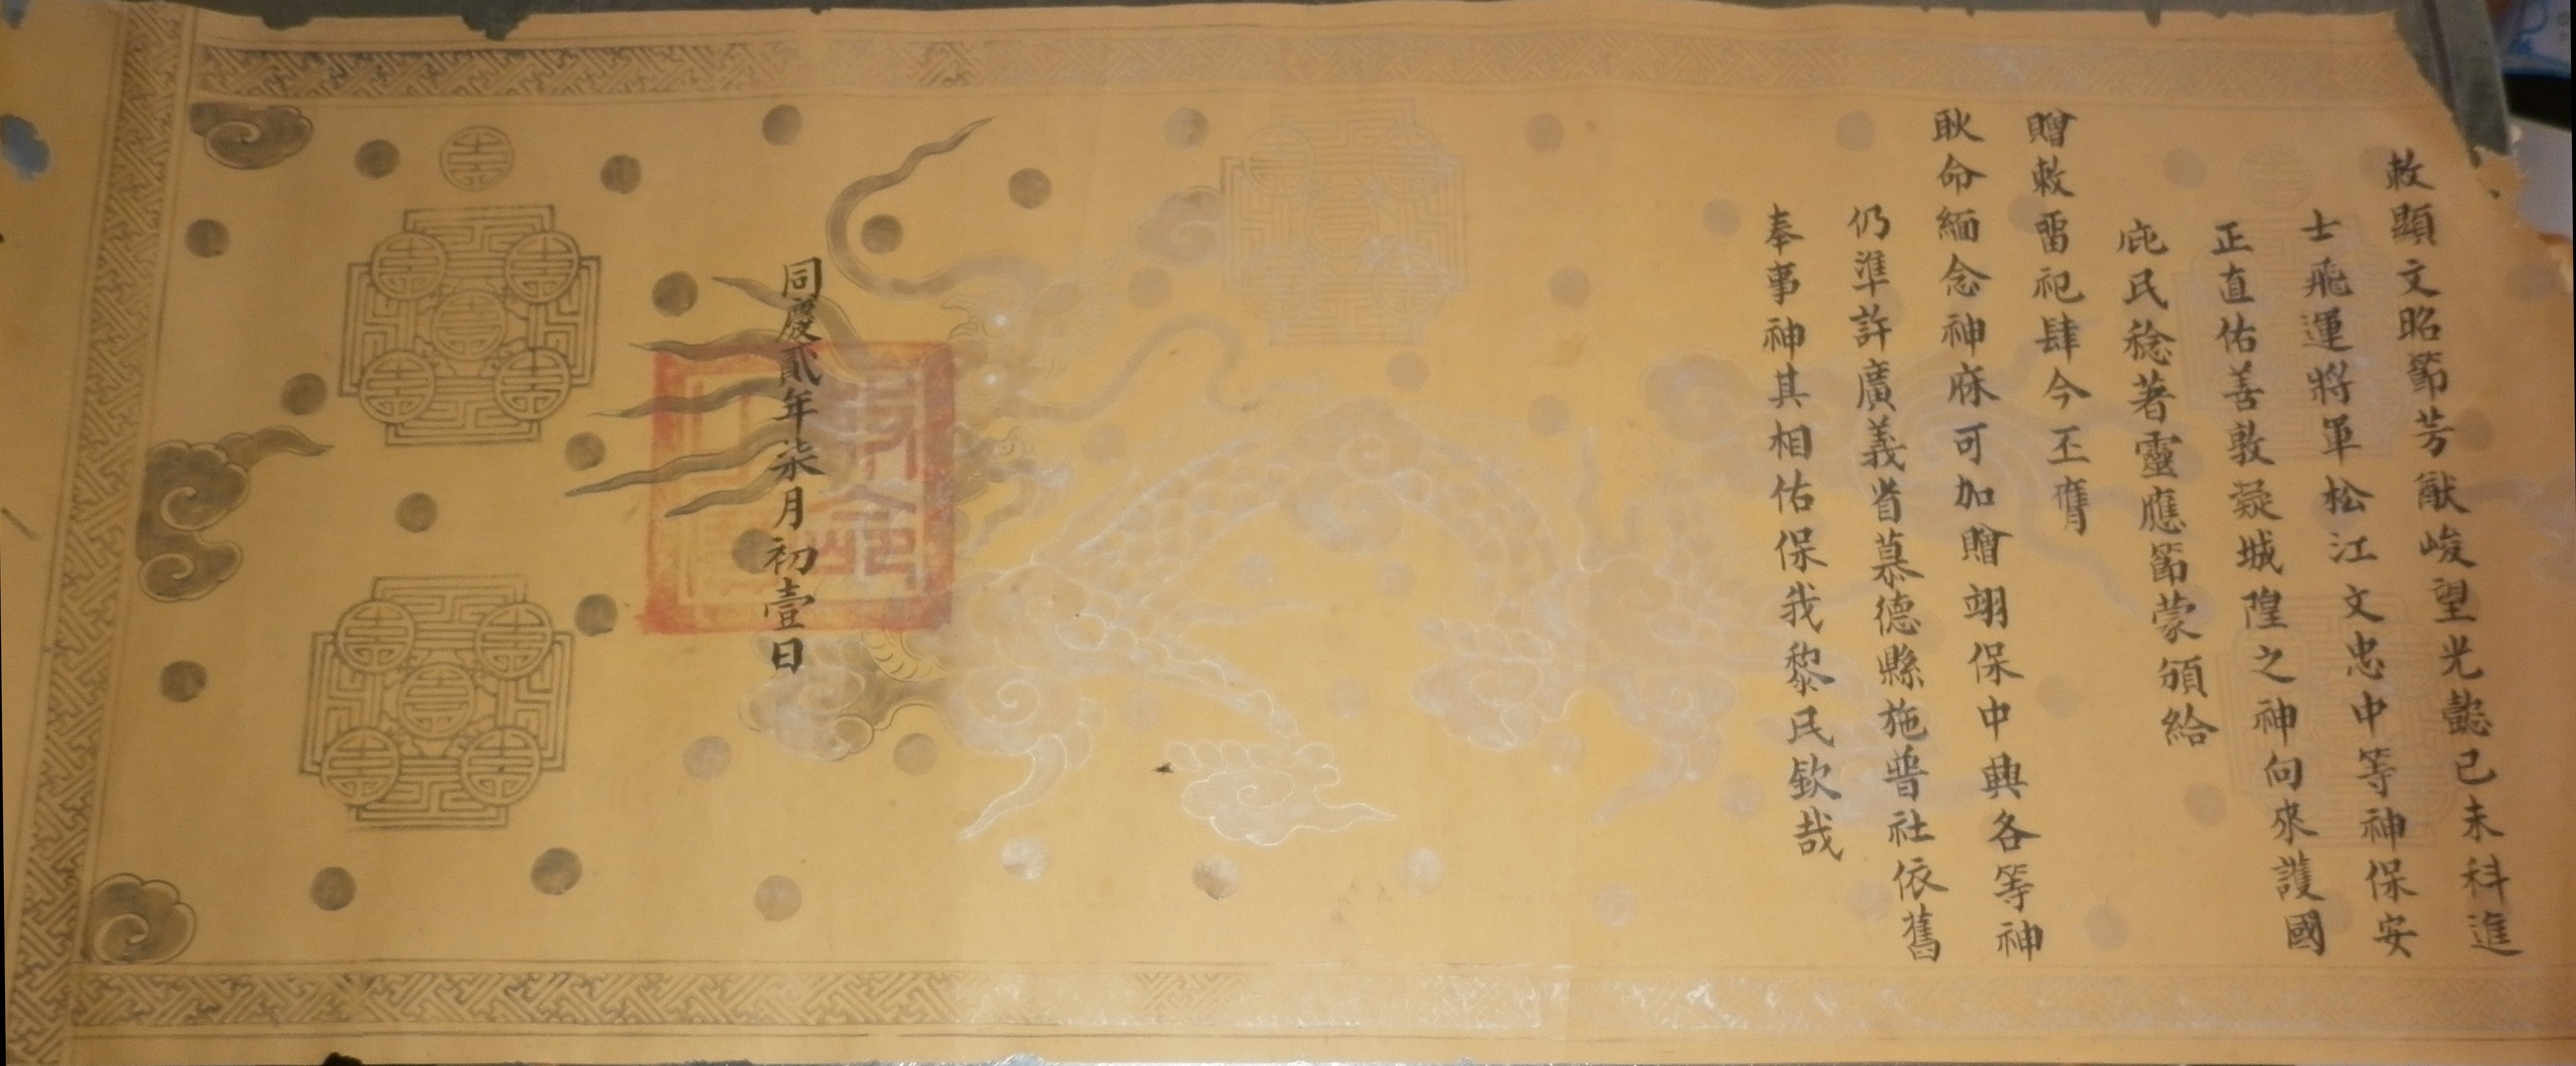 敕顯文昭節芳猷峻望光懿己未科進
士飛運將軍松江文忠中等神保安
正直佑善敦凝城隍之神向來護國
庇民稔著靈應節蒙頒給
贈敕留祀肆今丕膺
耿命緬念神庥可加贈翊保中興各等神
仍準許廣義省慕德縣施普社依舊
奉事神其相佑保我黎民欽哉
同慶貳年柒月初壹日